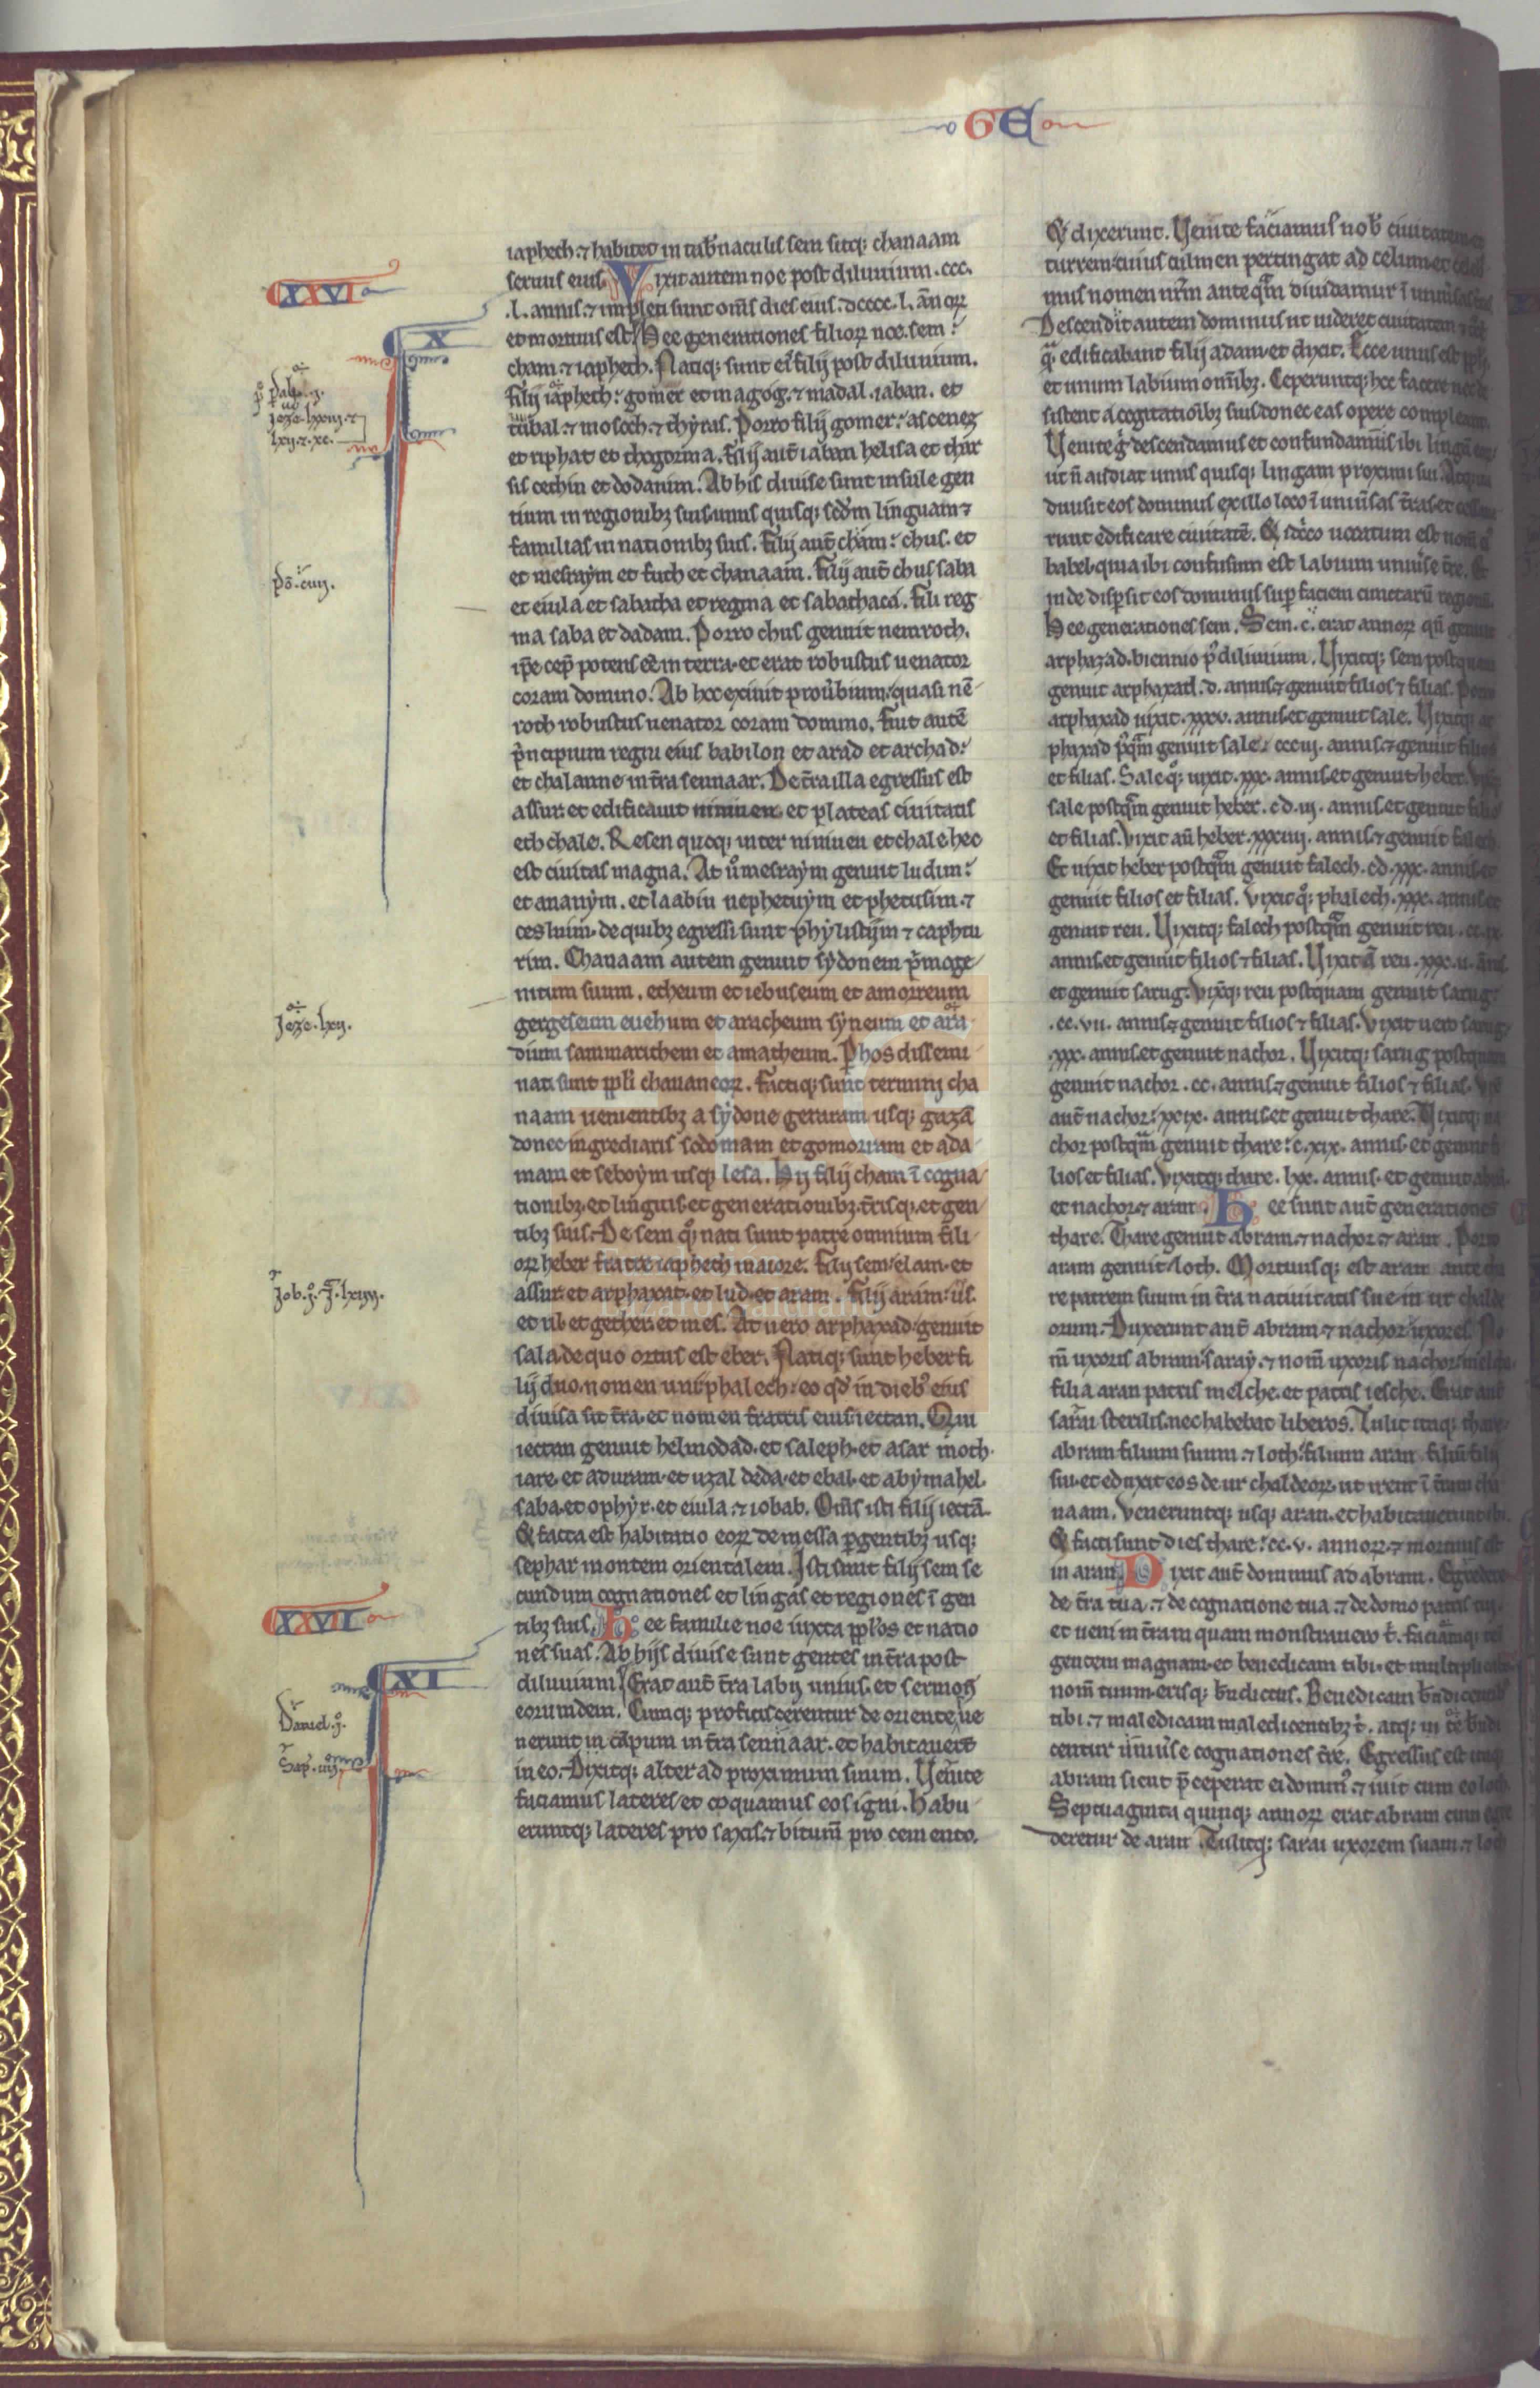 GE
XXVI
X
Jeze. lxvij.
Job. j.
XXVII
XI
Daniel. j.
Sap.
iapheth. ⁊ habitet in tab̄naculis sem sitq; chanaam
seruus eius. Vixit autem noe post diluuium. ccc.
.l. annis. ⁊ impleti sunt om̄s dies eius. dcccc. l. ānoꝝ
et mortuus est. Hee generationes filioꝝ noe. sem:
cham. ⁊ iapheth. Natiq; sunt eis filij post diluuium.
filij iapheth: gomer et magog. ⁊ madal. iaban. et
tubal. ⁊ mosoch. ⁊ thyras. Porro filij gomer: ascenez
et riphat et thogorma. filij aut̄ iaban helisa et thar
sis cethin et dodanim. Ab his diuise sunt insule gen
tium in regionibꝫ suis. unus quisq; scd̄m linguam ⁊
familias in nationibꝫ suis. filij aut̄ cham: chus. et
et mesraym et futh et chanaam. filij aut̄ chus saba
et euila et sabatha et regma et sabathaca. fili reg
ma saba et dadam. Porro chus genuit nemroth.
ip̄e cep̄ potens eē in terra. et erat robustus uenator
coram domino. Ab hoc exiuit prou̾bium. quasi nē
roth robustus uenator coram domino. fuit autē
p̾ncipium regni eius babilon et arad et archad:
et chalanne in t̄ra sennaar. De t̄ra illa egressus est
assur. et edificauit niniuen. et plateas ciuitatis
eth chale. Resen quoq; inter niniuen et chale hec
est ciuitas magna. At u̾o mesraym genuit ludim:
et ananym. et laabin nephetuym et phetusim. ⁊
cesluim. de quibꝫ egressi sunt phylistijm ⁊ caphtu
rim. Chanaam autem genuit sydonem p̾moge
nitum suum. etheum et iebuseum et amorreum
gergeseum euehum et aracheum syneum et ara
dium sammaritem et amatheum. Phos dissemi
nati sunt pp̄li chananeoꝝ. factiq; sunt termini cha
naam uenientibꝫ a sydone geraram usq; gazā
donec ingrediaris sodomam et gomorram et ada
mam et seboym usq; lesa. Hij filij cham ī cogna
tionibꝫ. et linguis. et generationibꝫ. t̄risq; et gen
tibꝫ suis. De sem q̊; nati sunt patre omnium fili
oꝝ heber fratre iapheth maiore. filij sem. elam. et
assur. et arphaxat. et lud. et aram. filij aram: us.
et ul. et gether. et mes. At uero arphaxad genuit
sala. de quo ortus est eber. Natiq; sunt heber fi
lij duo. nomen uni phalech: eo qd̄ in dieb̾ eius
diuisa sit t̄ra. et nomen fratris eius iectan. Qui
iectan genuit helmodad. et saleph. et asar moth.
iare. et aduram. et uzal deda. et ebal. et abymahel.
saba. et ophyr. et euila. ⁊ iobab. Om̄s isti filij iectā.
Et facta est habitatio eoꝝ de messa p̱gentibꝫ usq;
sephar montem orientalem. Isti sunt filij sem se
cundum cognationes et lingas et regiones ī gen
tibꝫ suis. Hee familie noe iuxta pp̄los et natio
nes suas. Ab hijs diuise sunt gentes in t̄ra post
diluuium. Erat aut̄ t̄ra labij unius. et sermoņ
eorumdem. Cumq; proficiscerentur de oriente ue
nerunt in cāpum in t̄ra sennaar. et habitauer̄t
in eo. Dixitq; alter ad proximum suum. Venite
faciamus lateres et coquamus eos igni. Habu
eruntq; lateres pro saxis. ⁊ bitum̄ pro cemento.
Et dixerunt. Venite faciamus nob̾ ciuitatem et
turrem. cuius culmen pertingat ad celum. et
mus nomen nr̄m anteq̄m diuidamur ī
Descendit autem dominus ut uideret ciuitatem ⁊
q̄ edificabant filij adam. et dixit. Ecce unus est
et unum labium om̄ibꝫ. Ceperuntq; hec facere
sistent a cogitatioībꝫ suis donec eas opere compleant
Venite g̾ descendamus et confundamus ibi linguā
ut n̄ audiat unus quisq; lingam proximi sui.
diuisit eos dominus ex illo loco ī uniu̾sas t̄ras et
runt edificare ciuitatē. Et idcirco uocatum est nom̄
babel. quia ibi confusum est labium uniu̾se t̄re. Et
inde disp̱sit eos dominus sup̱ faciem cunctarū
Hee generationes sem. Sem. c. erat annoꝝ qn̄ genuit
arphazad. biennio p̾ diluuium. Vixitq; sem postquam
genuit arphaxad. d. annis. ⁊ genuit filios ⁊ filias. Porro
arphaxad uixit. xxxv. annis. et genuit sale. Vixitq; ar
phaxad p̾q̄m genuit sale. ccciij. annis. ⁊ genuit filios
et filias. Sale q̊; uixit. xxx. annis. et genuit heber.
sale postq̄m genuit heber. cd. iij. annis. et genuit filios
et filias. Vixit aū heber. xxxiiij. annis. ⁊ genuit falech.
Et uixit heber postq̄m genuit falech. cd. xxx. annis. et
genuit filios et filias. Vixit q̊; phalech. xxx. annis. et
genuit reu. Vixitq; falech postq̄m genuit reu. cc. ix.
annis. et genuit filios ⁊ filias. Vixit ā reu. xxx. ij.
et genuit sarug. Vixq; reu postquam genuit sarug:
.cc. vii. annis. ⁊ genuit filios ⁊ filias. Vixit uero sarug
.xxx. annis. et genuit nachor. Vixitq; sarug postquam
genuit nachor. cc. annis. ⁊ genuit filios ⁊ filias.
aut̄ nachor: xxix. annis. et genuit thare. Vixitq; na
chor postq̄m genuit thare: c. xix. annis. et genuit fi
lios et filias. Vixitq; thare. lxx. annis. et genuit
et nachor. ⁊ aran. Hee sunt aut̄ generationes
thare. Thare genuit abram. ⁊ nachor. ⁊ aran. Porro
aram genuit loth. Mortuusq; est aran ante tha
re patrem suum in t̄ra natiuitatis sue in ur chalde
orum. Duxerunt aut̄ abram. ⁊ nachor uxores. No
m̄ uxoris abram: saray. ⁊ nom̄ uxoris nachor:
filia aran patris melche. et patris iesche. Erat aut̄
sarai sterilis. nec habebat liberos. Tulit itaq; thare
abram filium suum. ⁊ loth. filium aran filiū filij
sui. et eduxit eos de ur chaldeoꝝ. ut irent ī t̄ram cha
naam. Veneruntq; usq; aran. et habitauerunt ibi.
Et facti sunt dies thare: cc. v. annoꝝ. ⁊ mortuus est
in aran. Dixit aut̄ dominus ad abram. Egredere
de t̄ra tua. ⁊ de cognatione tua. ⁊ de domo patris tui.
et ueni in t̄ram quam monstrauero t̾. faciamq;
gentem magnam. et benedicam tibi. et
nom̄ tuum. erisq; bn̄dictus. Benedicam bn̄dicentibꝫ
tibi. ⁊ maledicam maledicentibꝫ t̾. atq; in te bn̄di
centur uniu̾se cognationes t̄re. Egressus est itaq;
abram sicut p̄ceperat ei domin̾. ⁊ iuit cum eo loth.
Septuaginta quinq; annoꝝ erat abram cum
deretur de aran. Tulitq; sarai uxorem suam. ⁊ loth